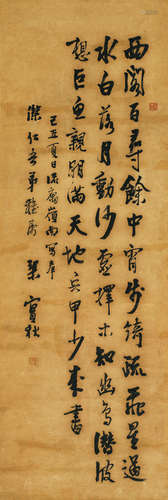 西閣百尋餘中宵步綺疏飛星過
水白落月動沙虛擇木知幽鳥潛波
想巨魚親朋滿天地兵甲少來書
己丑夏日流寓嶺南寫奉
傑仁吾弟 梁實秋